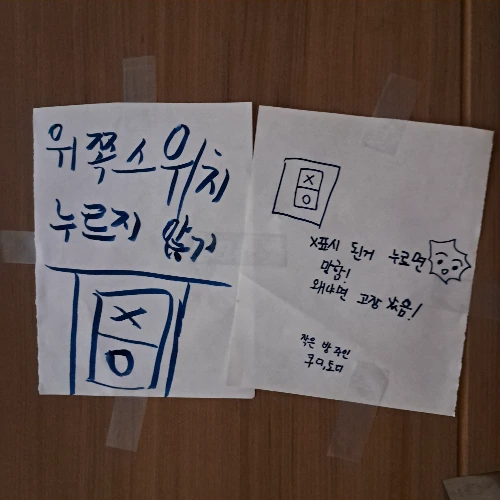 위쪽 스위치
누르지 않기
X
O
X
O
X표시 된거 누르면
망함!
왜냐면 고장 났음!
작은 방 주인
쿠디,토디